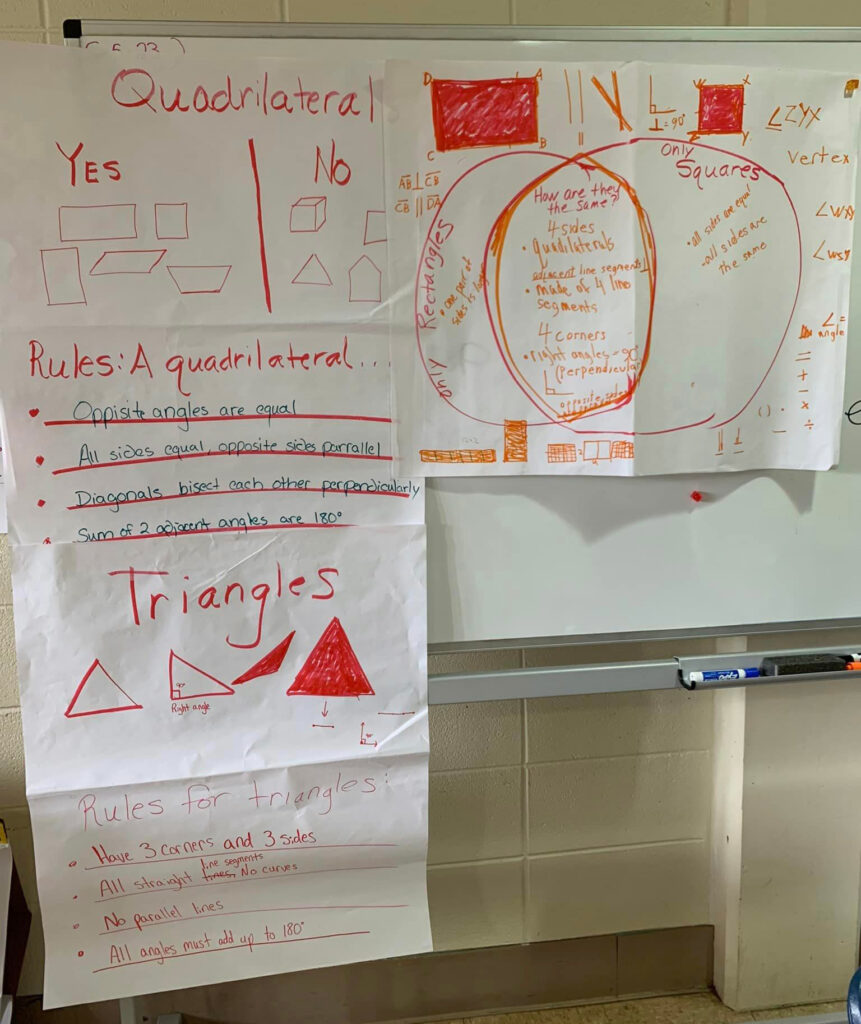 Quadrilateral
YES
NO
Rules: A quadrilateral...
Oppisite angles are equal
All sides equal, opposite sides parrallel
Diagonals bisect each other perpendicularly
Sum of 2 adjacent angles are 180°
Triangles
90°
Right angle
90°
Rules for triangles:
Have 3 corners and 3 sides
line segments
All straight lines, No curves
No parallel lines
All angles must add up to 180°
D
A
C
B
AB ⊥ CB
CB || DA
⊥ = 90°
X
Y
∠ZYX
Vertex
∠ =
angle
=
+
-
x
÷
( ) ·
|| ⊥
Only Rectangles
• one pair of
sides is
How are they
the same?
4 sides
• quadrilaterals
adjacent line segments ⊥
• made of 4 line
segments
4 corners
• right angles = 90°
(perpendicular
opposite sides
Only
Squares
• all sides are equal
- all sides are
the same
expo